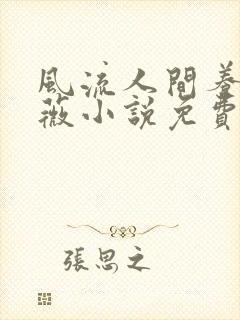 風流人間養
薇小說免費
張思之